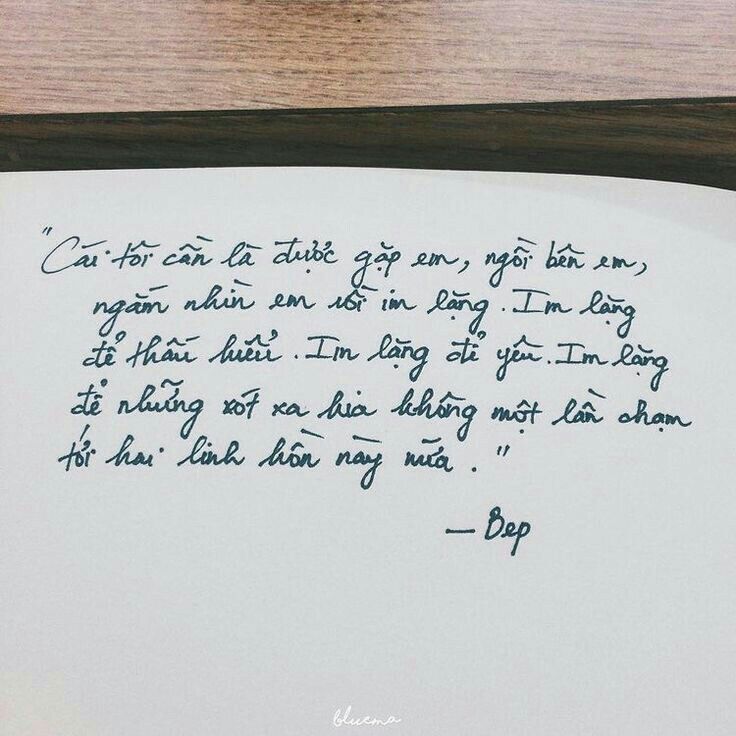 "Cái tôi cần là được gặp em, ngồi bên em,
ngắm nhìn em rồi im lặng. Im lặng
để thấu hiểu. Im lặng để yêu. Im lặng
để những xót xa kia không một lần chạm
tới hai linh hồn này nữa."
— Bep
bluema